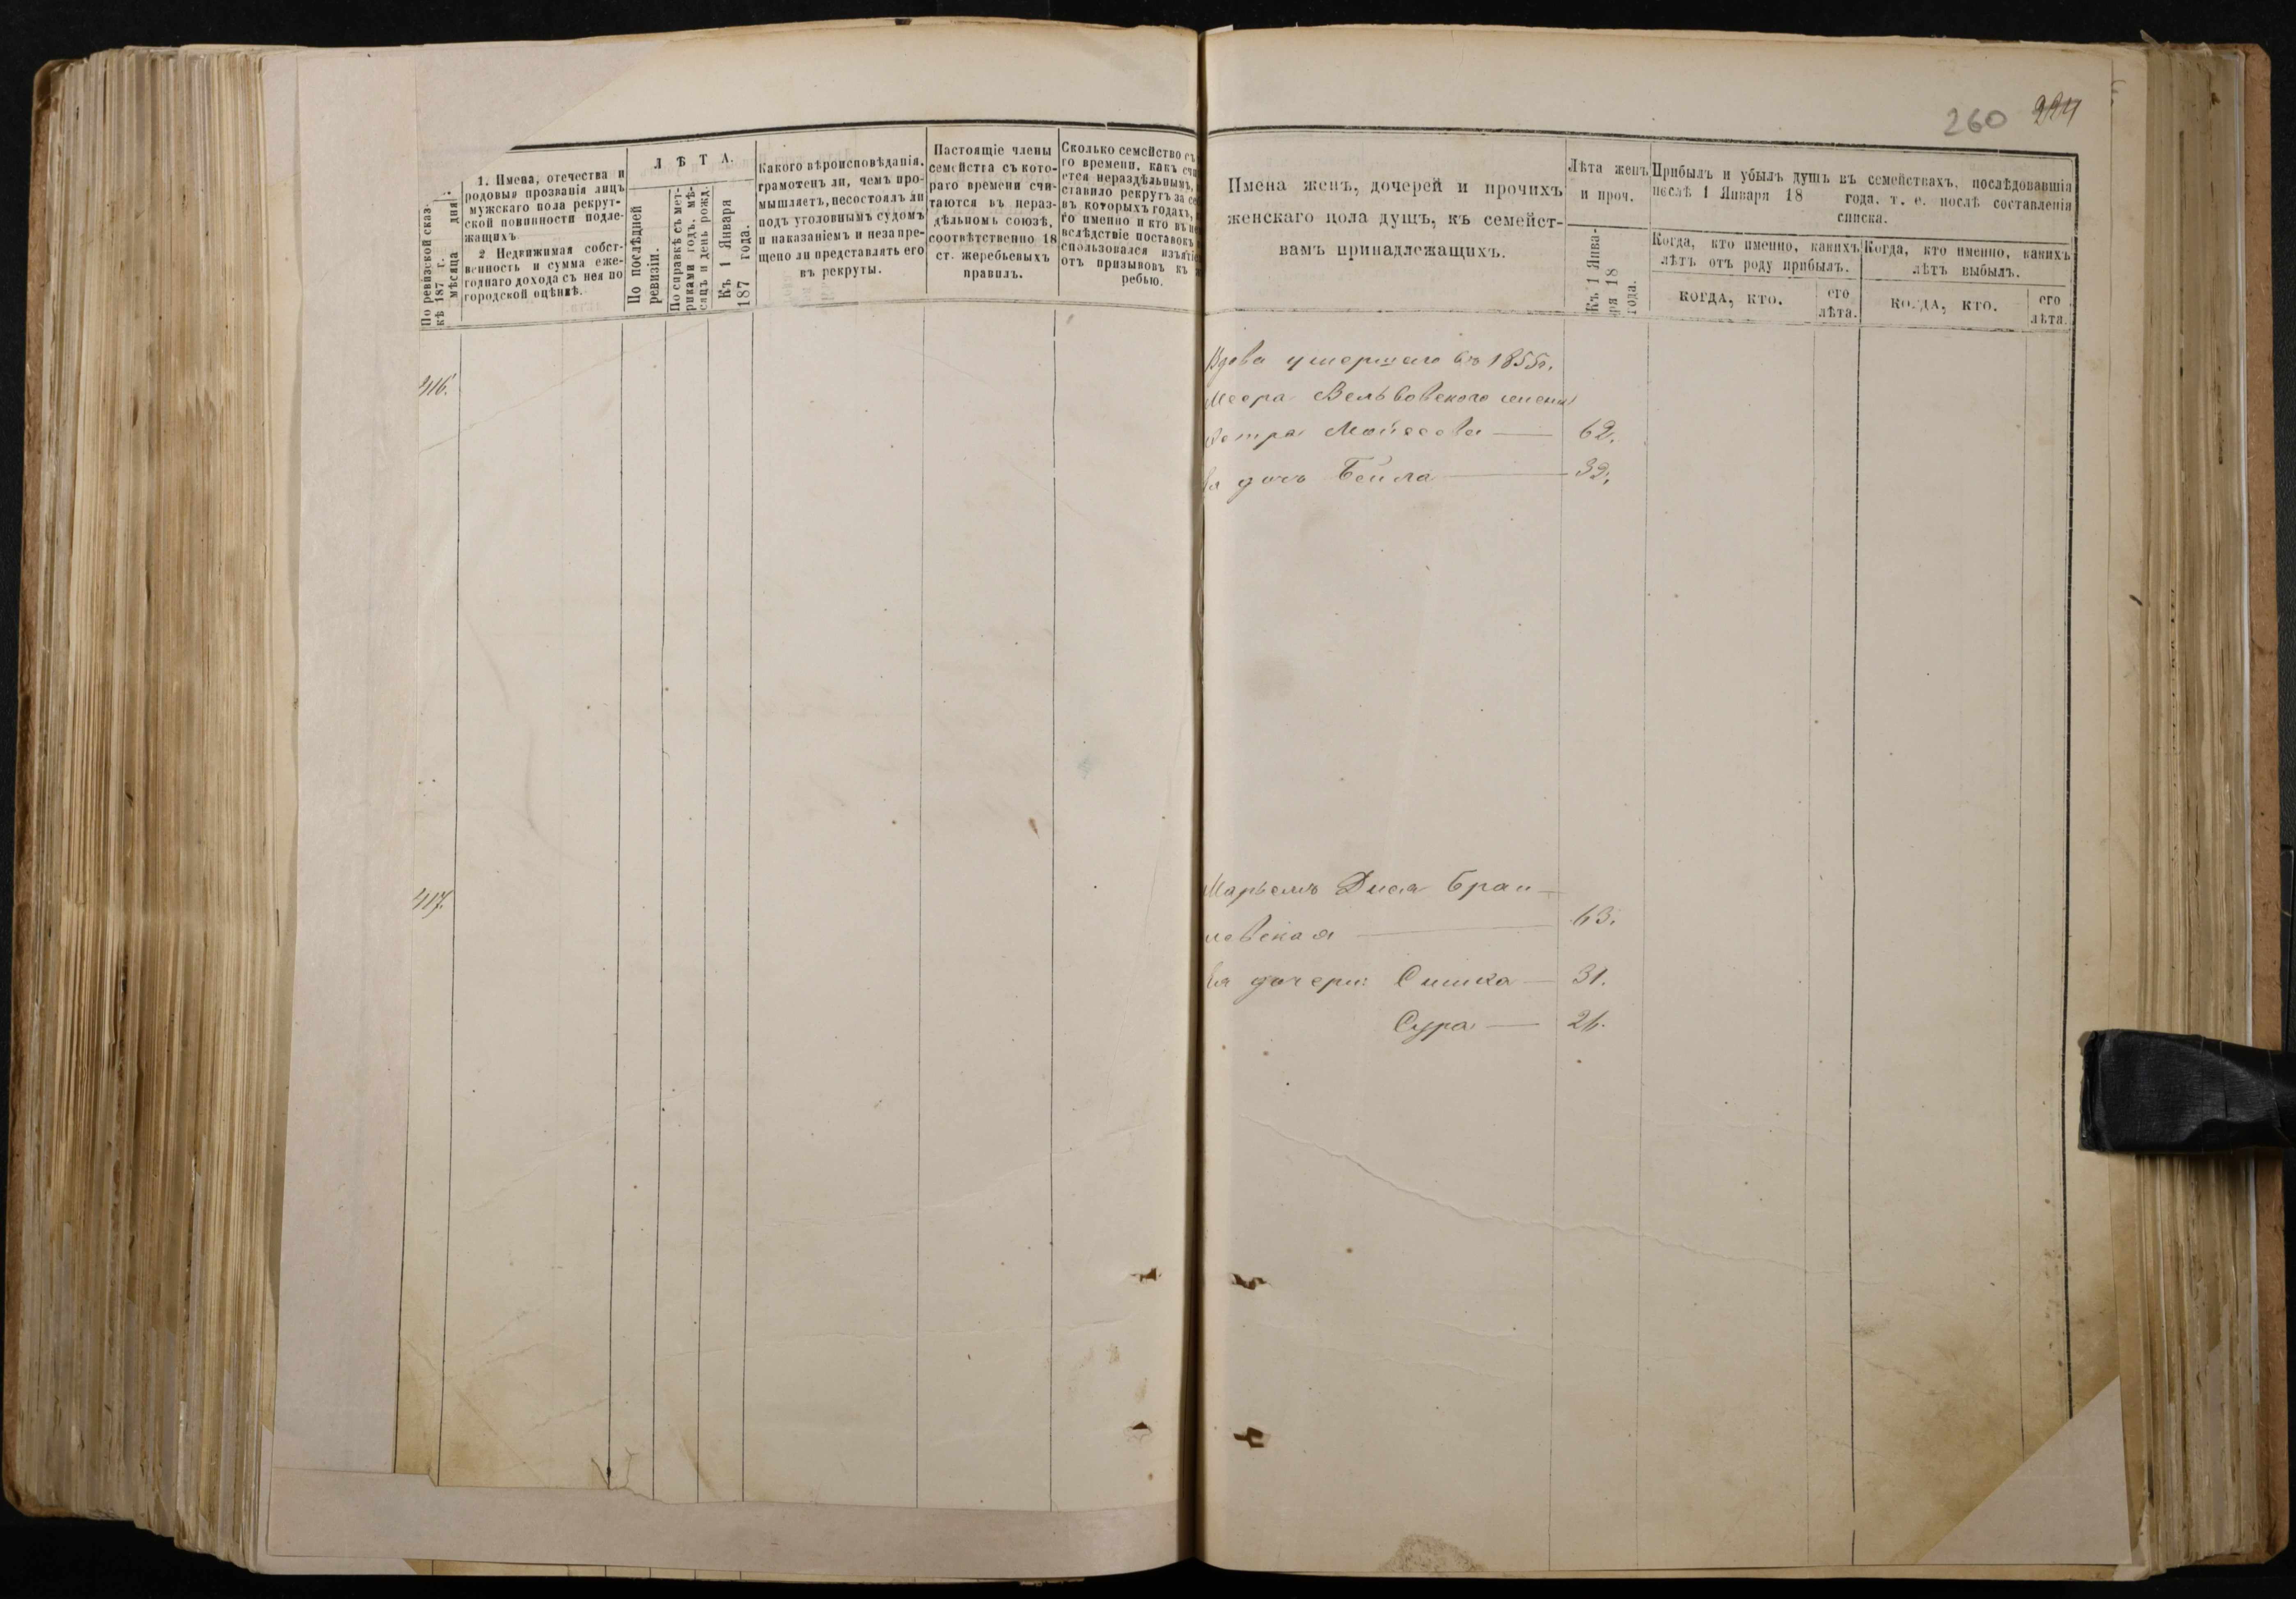 260 224
По ревизской сказ-
кѣ 187 г.
мѣсяца дня
1. Имена, отечества и
родовыя прозванія лицъ
мужскаго пола рекрут-
ской повинности подле-
жащихъ
2 Недвижимая собст-
венность и сумма еже-
годнаго дохода съ нея по
городской оцѣнкѣ.
ЛѢТА.
По послѣдней
ревизіи.
По справкѣ съ мет-
риками годъ, мѣ-
сяцъ и день рожд.
Къ 1 Января
187 года.
Какого вѣроисповѣданія,
грамотенъ ли, чемъ про-
мышляетъ, несостоялъ ли
подъ уголовнымъ судомъ
и наказаніемъ и неза пре-
щено ли представлять его
въ рекруты.
Настоящіе члены
семейства съ кото-
раго времени счи-
таются въ нераз-
дѣльномъ союзѣ,
соотвѣтственно 18
ст. жеребьевыхъ
правилъ.
Сколько семейство съ
го времени, какъ счи
ется нераздѣльнымъ,
ставило рекрутъ за се
въ которыхъ годахъ,
го именно и кто въ
вслѣдствіе поставокъ
спользовался изъятіе
отъ призывовъ къ
ребью.
416.
417.
Имена женъ, дочерей и прочихъ
женскаго пола душъ, къ семейст-
вамъ принадлежащихъ.
Лѣта женъ
и проч.
Къ 1 Янва-
ря 18
года.
Прибылъ и убылъ душъ въ семействахъ, послѣдовавшія
послѣ 1 Января 18 года, т. е. послѣ составленія
списка.
Когда, кто именно, какихъ
лѣтъ отъ роду прибылъ.
когда, кто.
его
лѣта.
Когда, кто именно, какихъ
лѣтъ выбылъ.
когда, кто.
его
лѣта.
Вдова умершаго въ 1855г.
Меера жена
Мойсеева — 62.
Ея дочь Бейла — 32.
Марьемъ Дися Бран-
ловская — 63.
Ея дочери: Симка — 31.
Сура — 26.